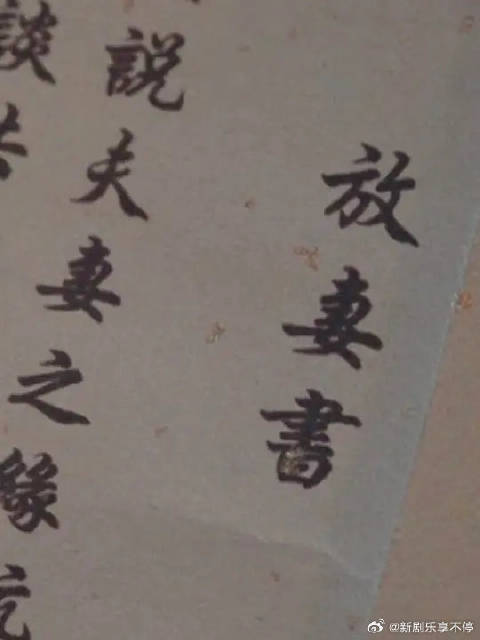 放妻書
說夫妻之緣
談
@新剧乐享不停